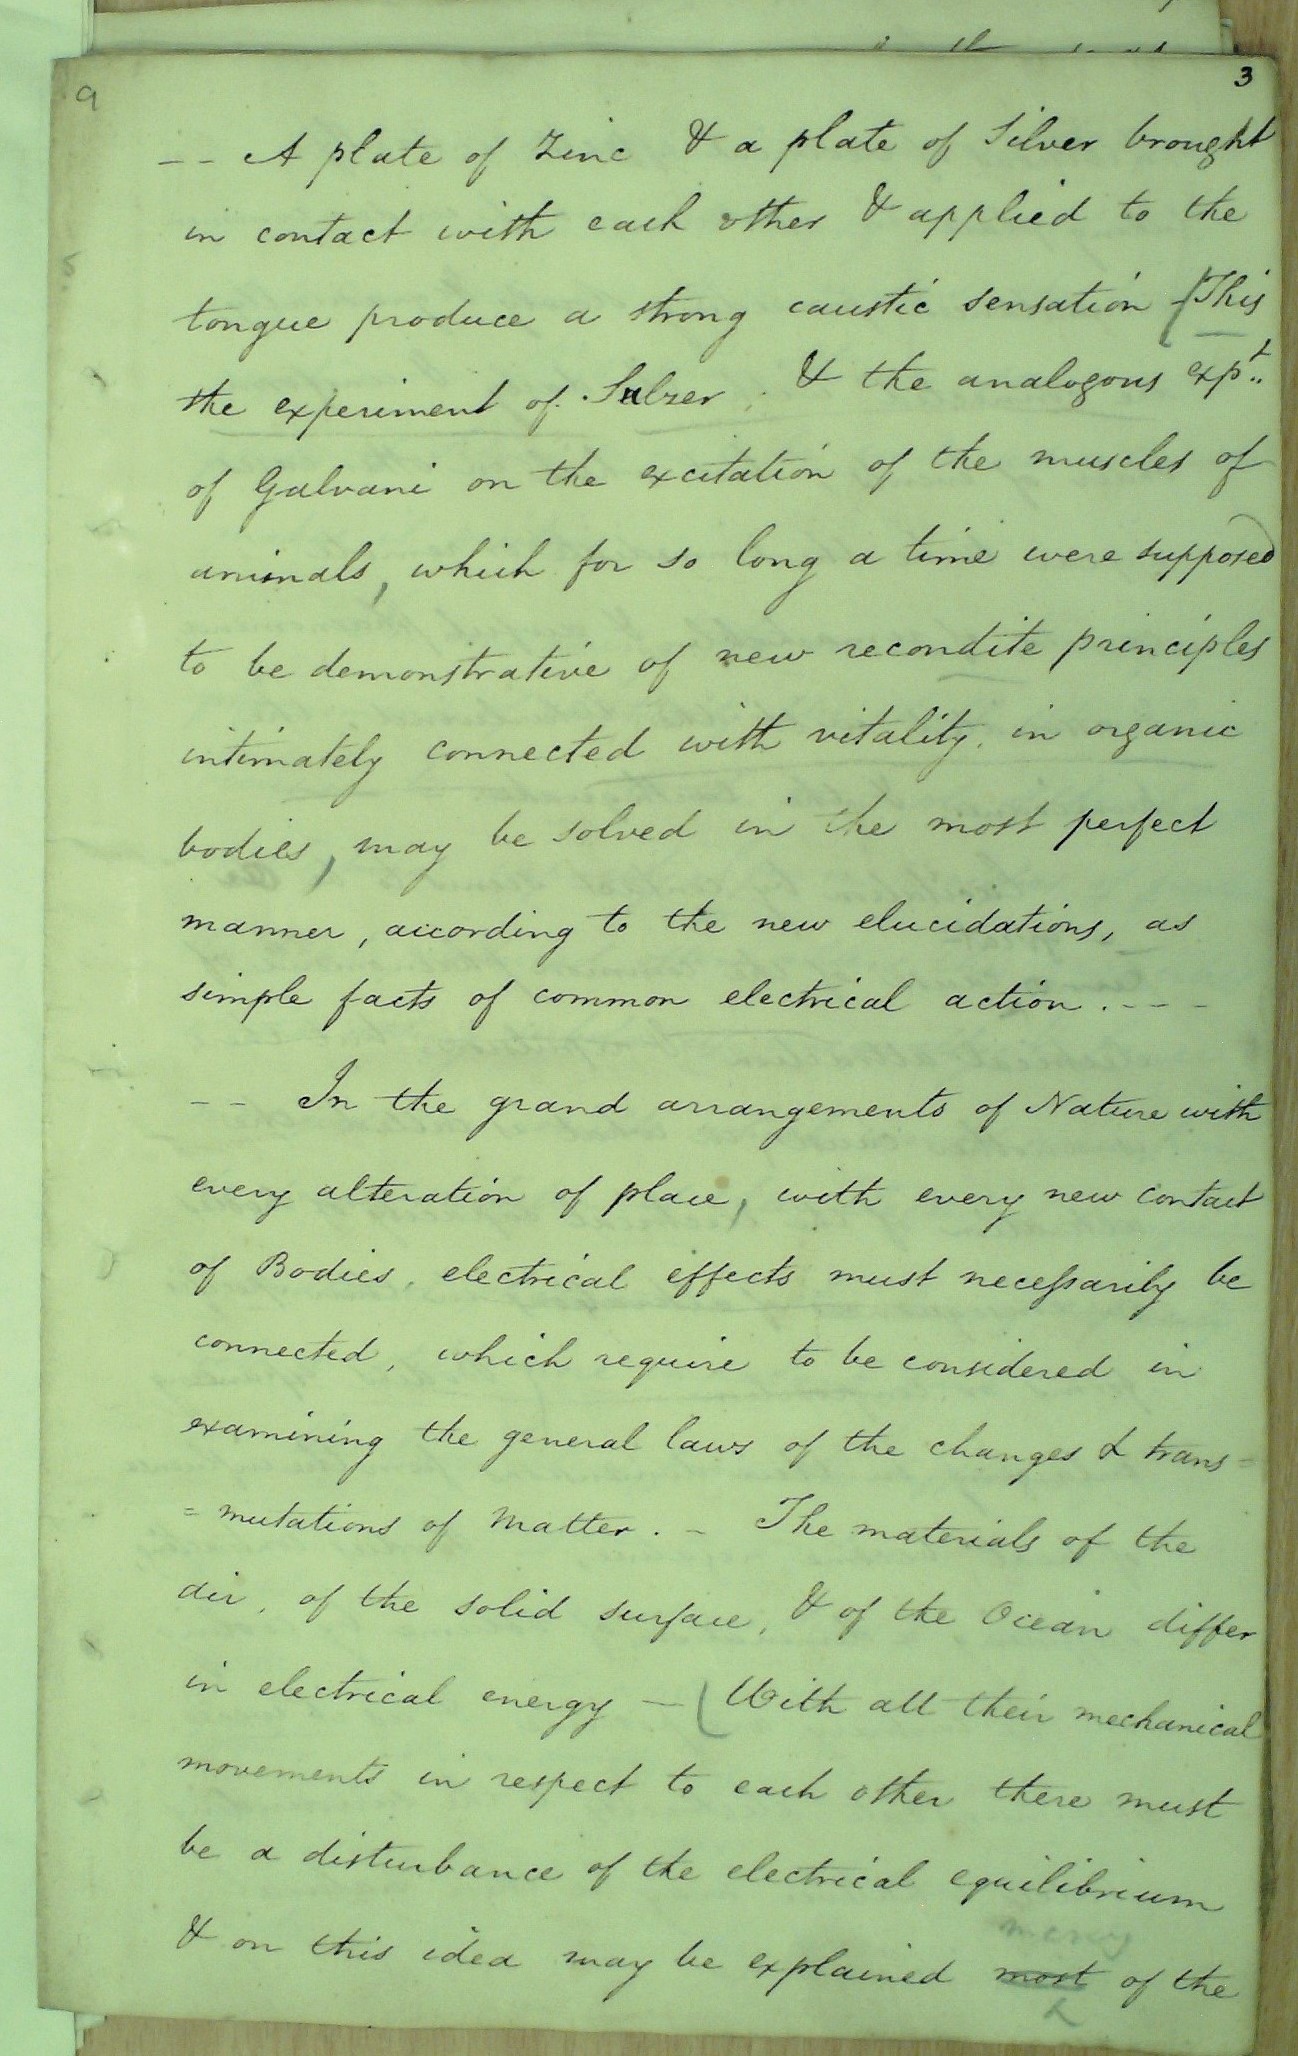 9
3
-- A plate of Zinc & a plate of Silver brought
in contact with each other & applied to the
tongue produce a strong caustic sensation [This
the experiment of Sulzer, & the analogous expt..
of Galvani on the excitation of the muscles of
animals, which for so long a time were supposed
to be demonstrative of new recondite principles
intimately connected with vitality in organic
bodies, may be solved in the most perfect
manner, according to the new elucidations, as
simple facts of common electrical action. - - -
-- In the grand arrangements of Nature with
every alteration of place, with every new contact
of Bodies, electrical effects must necessarily be
connected, which require to be considered in
examining the general laws of the changes & trans=
=mutations of Matter. - The materials of the
air, of the solid surface, & of the Ocean differ
in electrical energy - ( With all their mechanical
movements in respect to each other there must
be a disturbance of the electrical equilibrium
many
& on this idea may be explained most of the